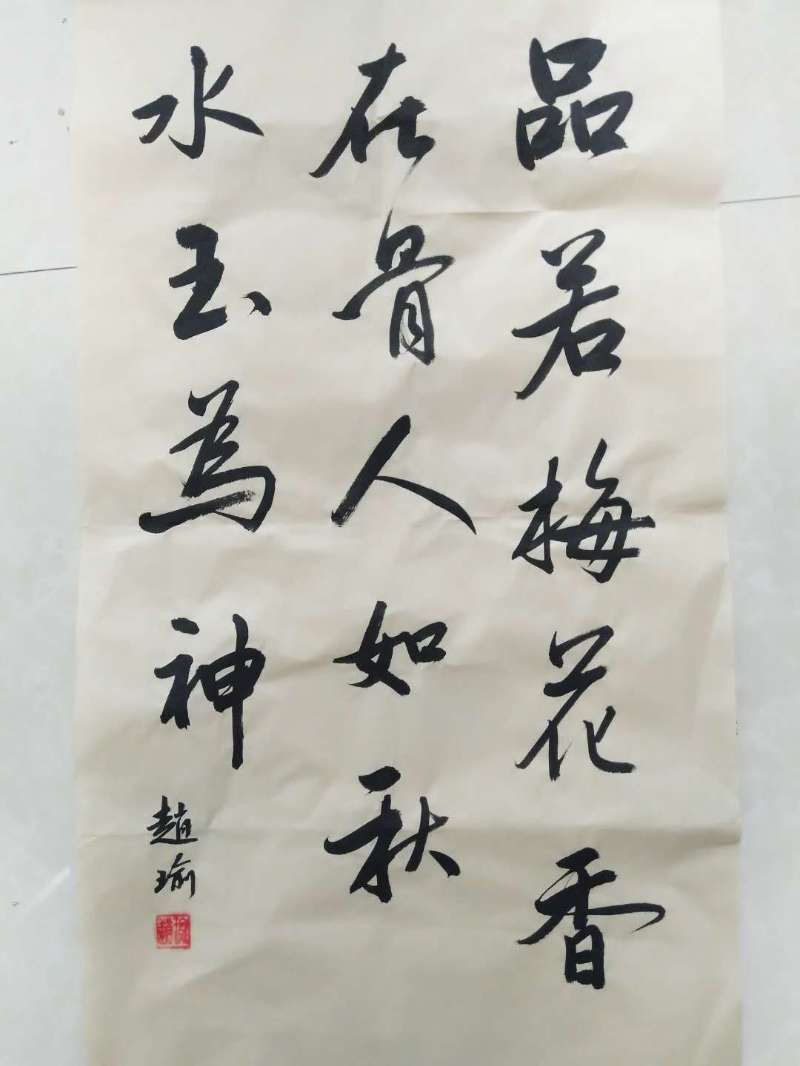 品若梅花香
在骨人如秋
水玉為神
趙瑜